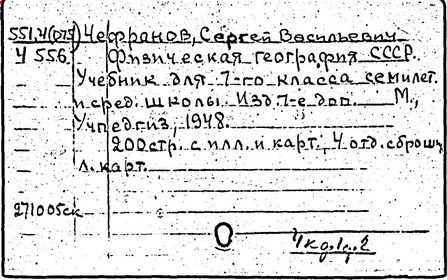 551.4(075) Чефранов, Сергей Васильевич
Ч 556. Физическая география СССР.
Учебник для 7-го класса семилет.
и сред. школы. Изд. 7-е доп. М.,
Учпедгиз, 1948.
200 стр. с илл. и карт., 4 отд. сброш.
л. карт.
271005ск